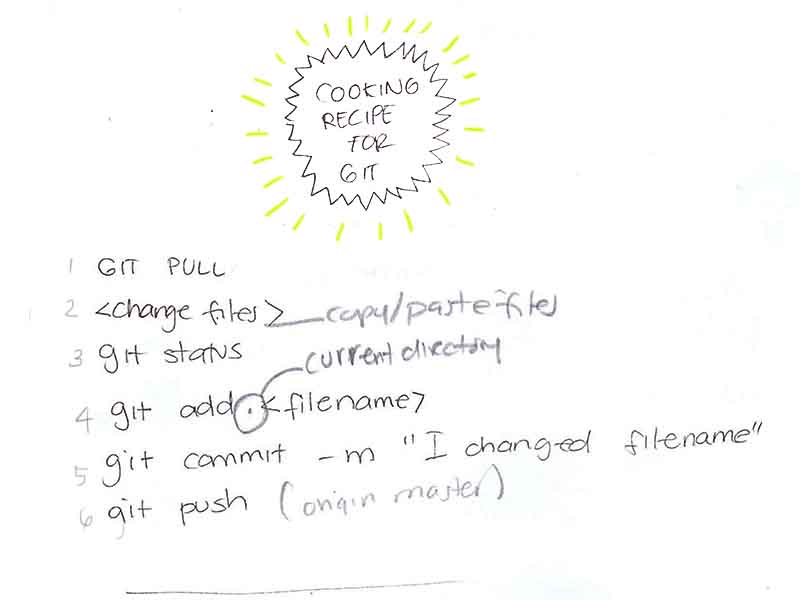 COOKING
RECIPE
FOR
GIT
1 GIT PULL
2 <change files> copy/paste files
3 git status current directory
4 git add . <filename>
5 git commit -m "I changed filename"
6 git push (origin master)